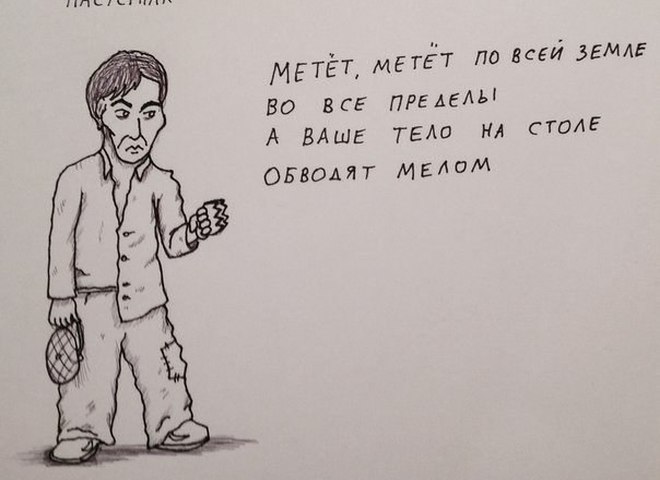 ПАСТЕРНАК
МЕТЁТ, МЕТЁТ ПО ВСЕЙ ЗЕМЛЕ
ВО ВСЕ ПРЕДЕЛЫ
А ВАШЕ ТЕЛО НА СТОЛЕ
ОБВОДЯТ МЕЛОМ